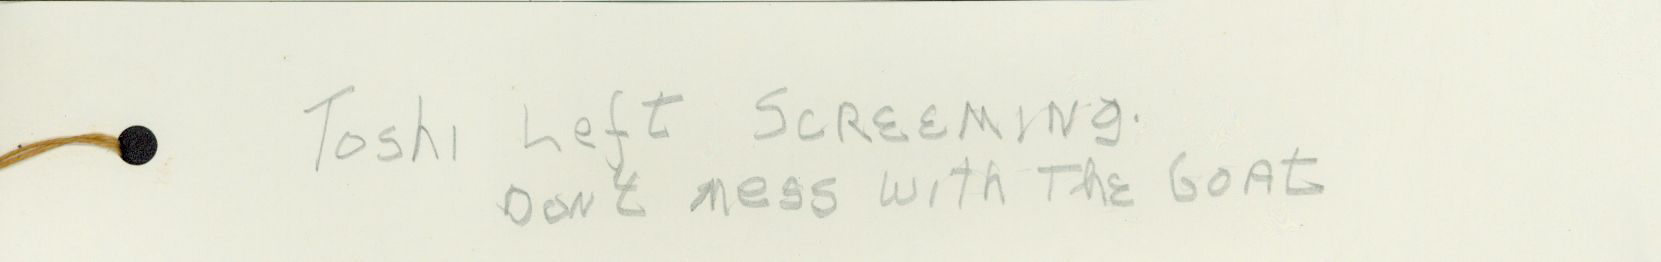 Toshi Left SCREEMING.
Don't mess with The GOAt